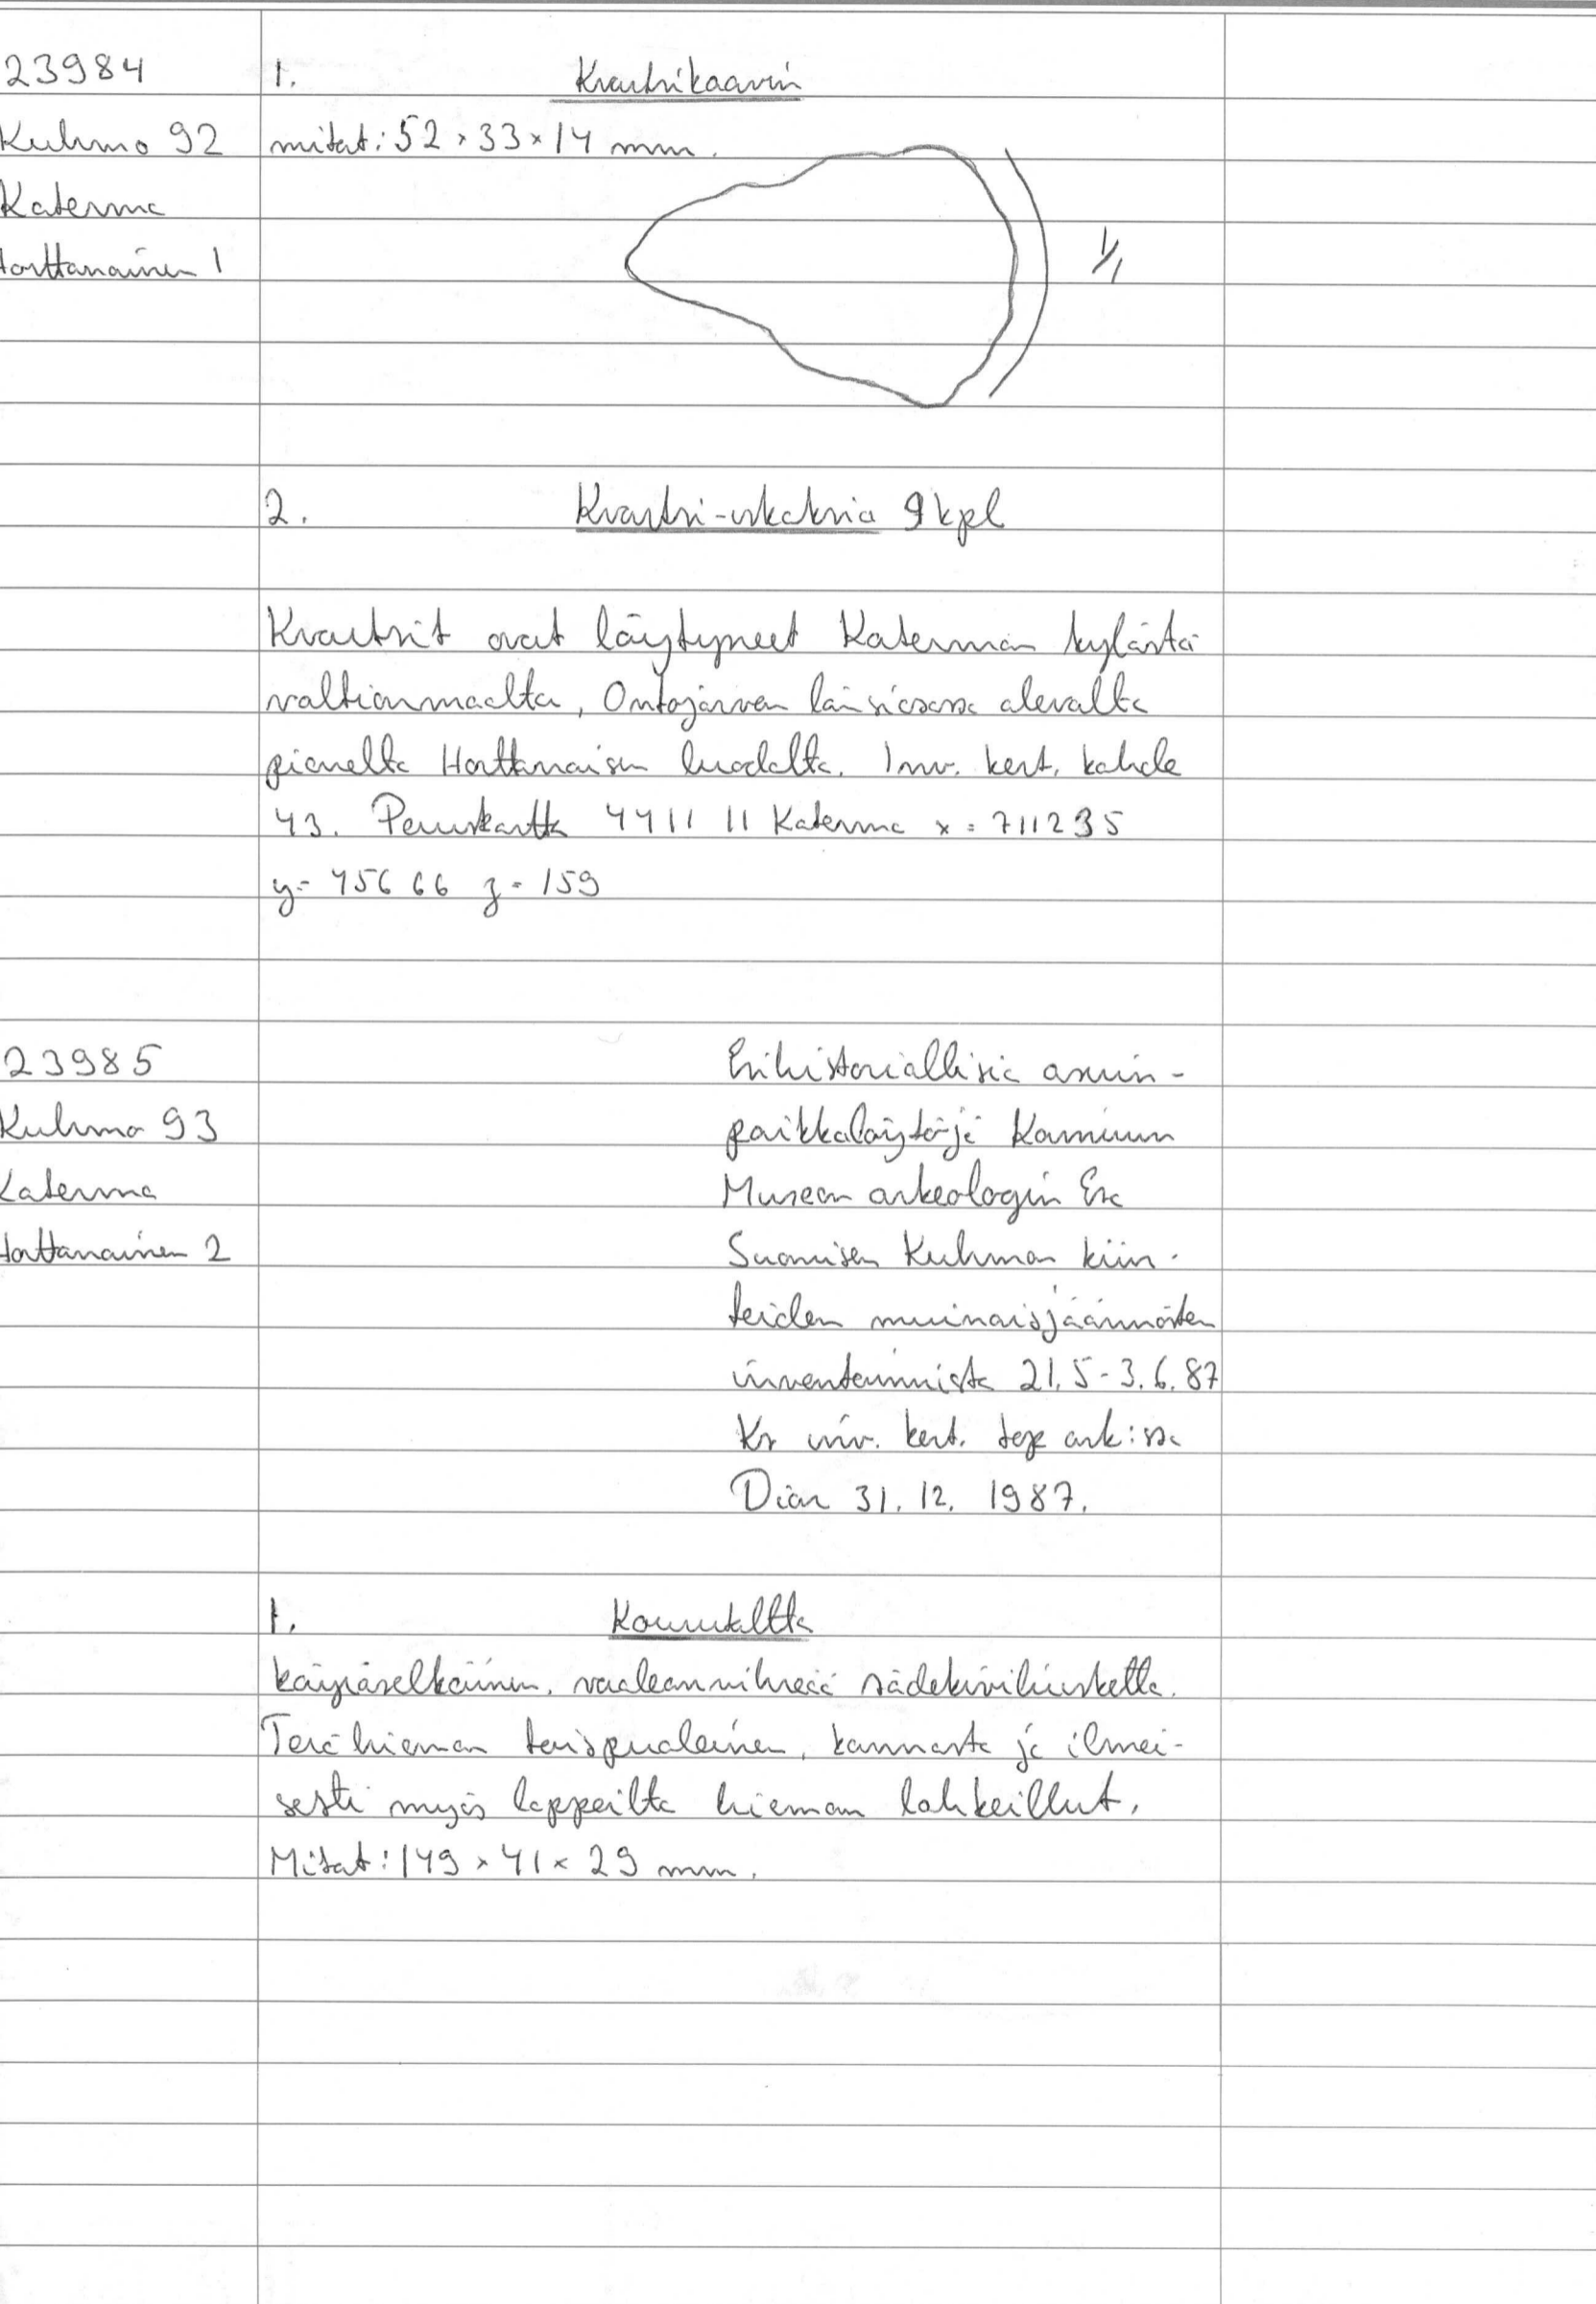 23984 1. Kvartsikaavin
Kuhmo 92 mitat: 52 × 33 × 14 mm.
Katerma
Horttanainen 1 1/1
2. Kvartsi-iskoksia 9 kpl
Kvartsit ovat löytyneet Katerman kylästä
valtionmaalta, Ontojärven länsiosassa olevalta
pieneltä Horttanaisen luodolta. Inv. kert. kohde
43. Peruskartta 4411 11 Katerma x = 711235
y = 456 66 z = 159
23985 Esihistoriallisia asuin-
Kuhmo 93 paikkalöytöjä Kainuun
Katerma Museon arkeologin Esa
Horttanainen 2 Suomisen Kuhmon kiin-
teiden muinaisjäännösten
inventoinnista 21.5 - 3.6.87
Ks inv. kert. top ark:ssa
Diar 31.12. 1987.
1. Kourutaltta
käyräselkäinen, vaaleanvihreää sädekiviliusketta.
Terä hieman toispuoleinen, kannasta ja ilmei-
sesti myös lappeilta hieman lohkeillut.
Mitat: 149 × 41 × 29 mm.